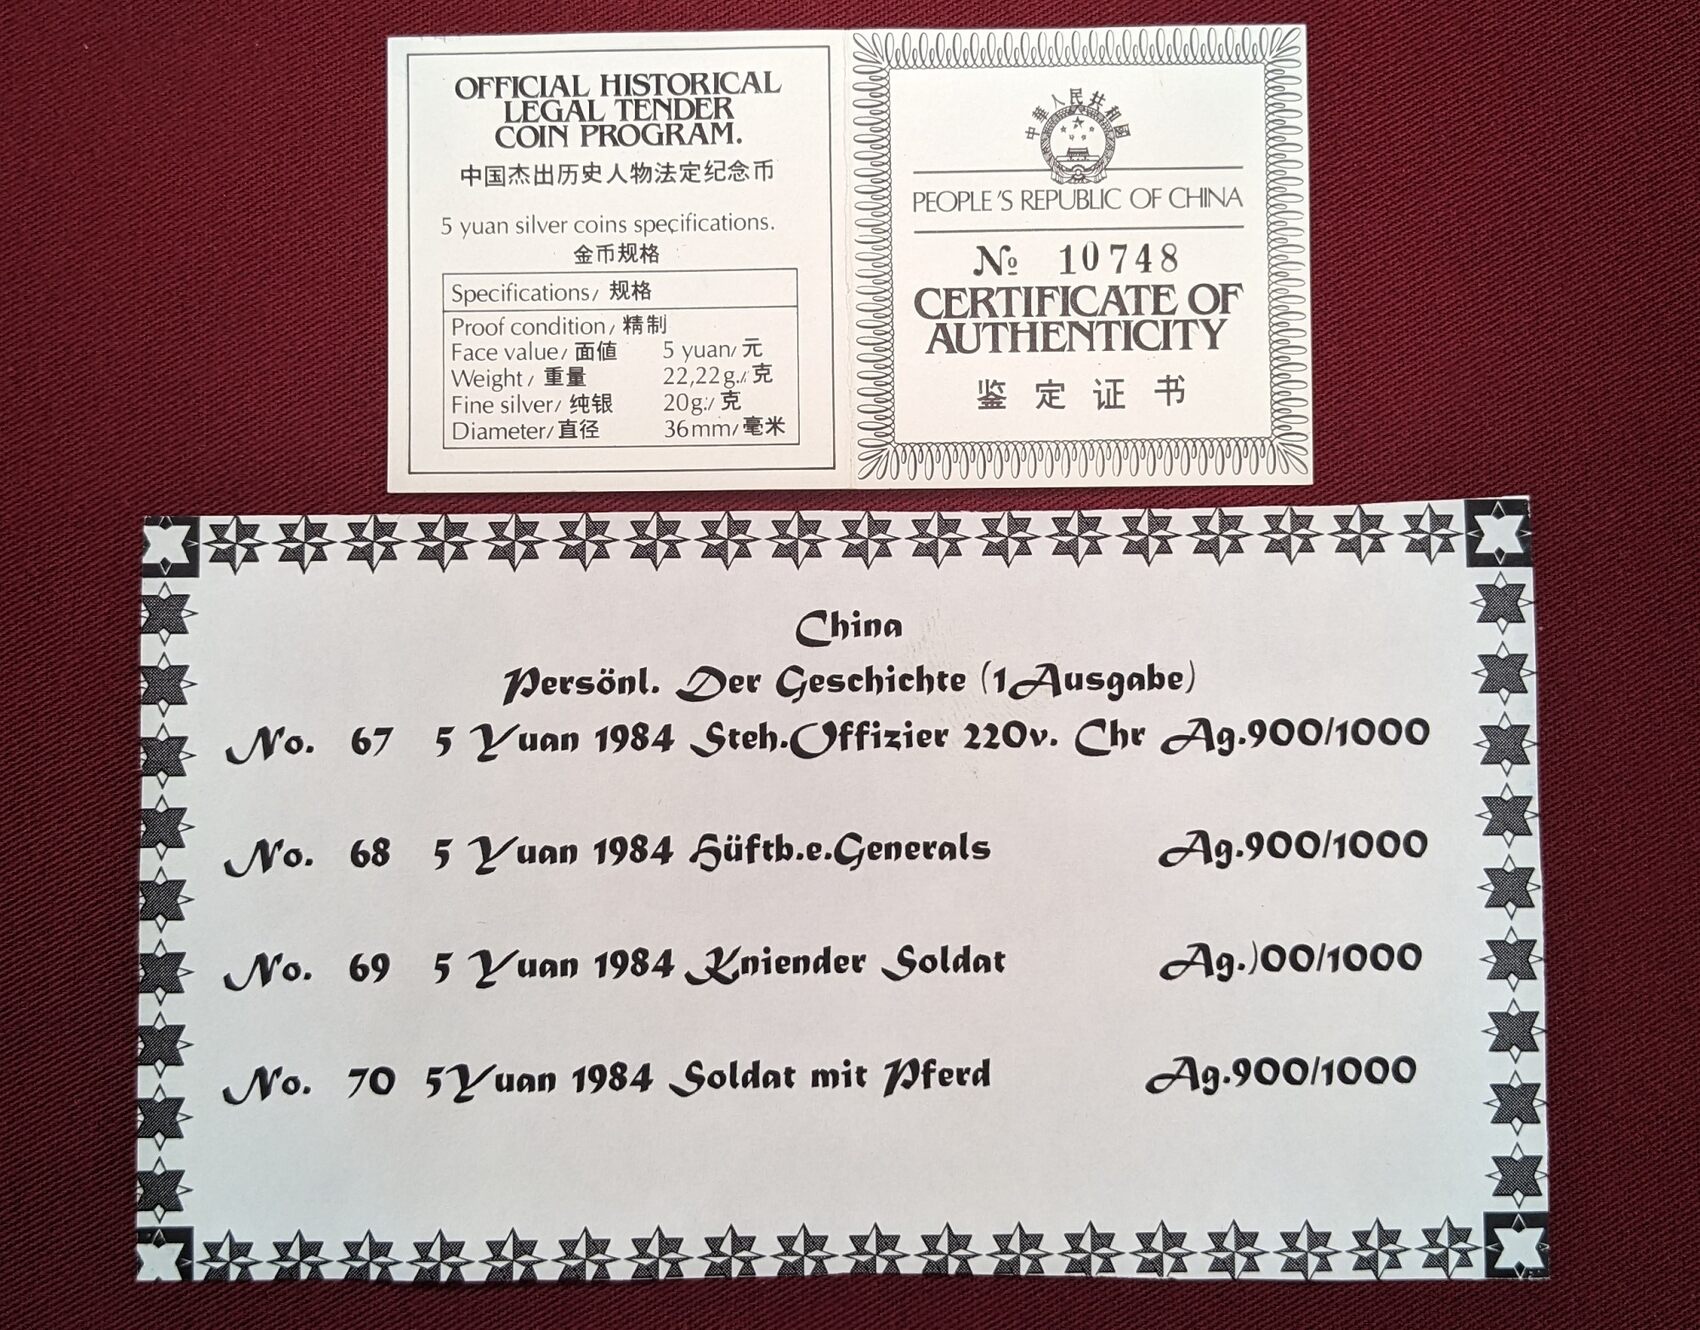 OFFICIAL HISTORICAL
LEGAL TENDER
COIN PROGRAM.
中国杰出历史人物法定纪念币
5 yuan silver coins specifications.
金币规格
Specifications/ 规格
Proof condition/ 精制
Face value/ 面值 5 yuan/ 元
Weight/ 重量 22,22g./ 克
Fine silver/ 纯银 20g./ 克
Diameter/ 直径 36mm/ 毫米
中華人民共和國
PEOPLE'S REPUBLIC OF CHINA
№ 10748
CERTIFICATE OF
AUTHENTICITY
鉴定证书
China
Persönl. Der Geschichte (1Ausgabe)
No. 67 5 Yuan 1984 Steh.Offizier 220v. Chr Ag.900/1000
No. 68 5 Yuan 1984 Hüftb.e.Generals Ag.900/1000
No. 69 5 Yuan 1984 Kniender Soldat Ag.)00/1000
No. 70 5Yuan 1984 Soldat mit Pferd Ag.900/1000